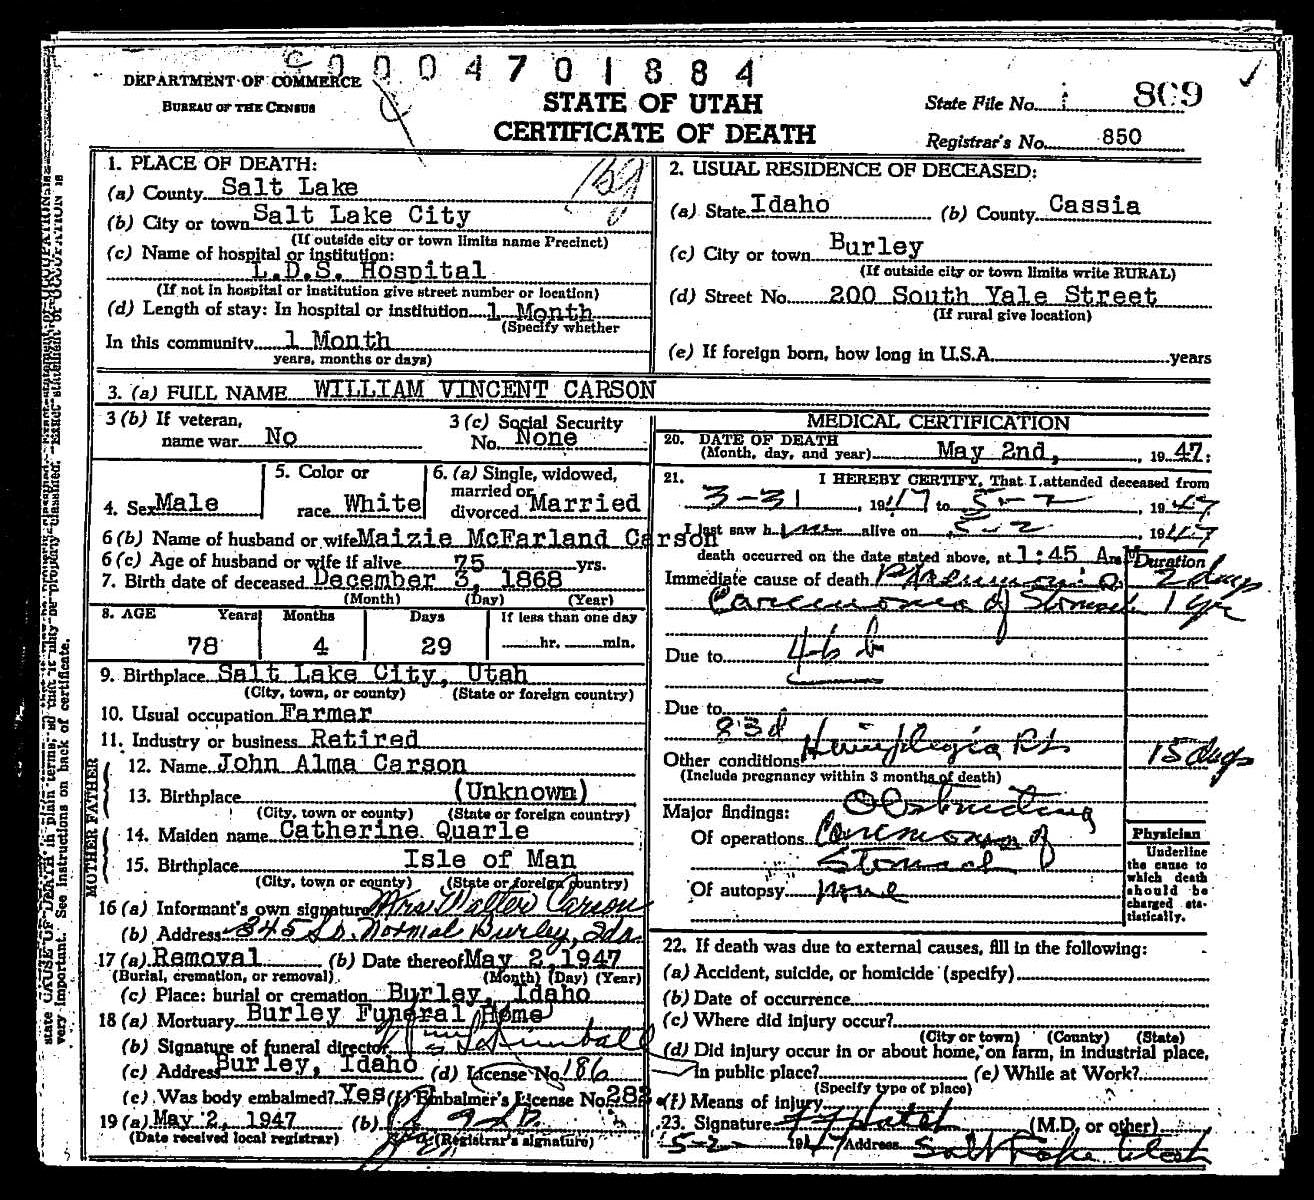 0004701884
DEPARTMENT OF COMMERCE
BUREAU OF THE CENSUS
STATE OF UTAH
CERTIFICATE OF DEATH
State File No. 809
Registrar's No. 850
1. PLACE OF DEATH:
(a) County Salt Lake
(b) City or town Salt Lake City
(If outside city or town limits name Precinct)
(c) Name of hospital or institution:
L.D.S. Hospital
(If not in hospital or institution give street number or location)
(d) Length of stay: In hospital or institution 1 Month
(Specify whether
In this community 1 Month
years, months or days)
2. USUAL RESIDENCE OF DECEASED:
(a) State Idaho (b) County Cassia
(c) City or town Burley
(If outside city or town limits write RURAL)
(d) Street No. 200 South Yale Street
(If rural give location)
(e) If foreign born, how long in U.S.A. years
3. (a) FULL NAME WILLIAM VINCENT CARSON
3 (b) If veteran, name war No
3 (c) Social Security No. None
4. Sex Male
5. Color or race White
6. (a) Single, widowed, married or divorced Married
6 (b) Name of husband or wife Maizie McFarland Carson
6 (c) Age of husband or wife if alive 75 yrs.
7. Birth date of deceased December 3, 1868
(Month) (Day) (Year)
8. AGE Years Months Days If less than one day
78 4 29 hr. min.
9. Birthplace Salt Lake City, Utah
(City, town, or county) (State or foreign country)
10. Usual occupation Farmer
11. Industry or business Retired
FATHER
12. Name John Alma Carson
13. Birthplace (Unknown)
(City, town or county) (State or foreign country)
MOTHER
14. Maiden name Catherine Quarle
15. Birthplace Isle of Man
(City, town or county) (State or foreign country)
16 (a) Informant's own signature Mrs Walter Carson
(b) Address 345 So. Normal Burley, Ida.
17 (a) Removal (b) Date thereof May 2, 1947
(Burial, cremation, or removal) (Month) (Day) (Year)
(c) Place: burial or cremation Burley, Idaho
18 (a) Mortuary Burley Funeral Home
(b) Signature of funeral director Kimball
(c) Address Burley, Idaho (d) License No. 186
(e) Was body embalmed? Yes (f) Embalmer's License No. 283
19 (a) May 2, 1947 (b)
(Date received local registrar) (Registrar's signature)
MEDICAL CERTIFICATION
20. DATE OF DEATH
(Month, day, and year) May 2nd, 1947:
21. I HEREBY CERTIFY, That I attended deceased from
3-31, 1947 to 5-2, 1947
I last saw him alive on 5-2 1947
death occurred on the date stated above, at 1:45 A.M
Duration
Immediate cause of death Pneumonia 2 days
Carcinoma of Stomach 1 yr
Due to 46 b
Due to
83d
Other conditions Hemiplegia Rt 15 days
(Include pregnancy within 3 months of death)
Major findings: Obstructing
Of operations Carcinoma of
Stomach
Of autopsy none
Physician
Underline
the cause to
which death
should be
charged sta-
tistically.
22. If death was due to external causes, fill in the following:
(a) Accident, suicide, or homicide (specify)
(b) Date of occurrence
(c) Where did injury occur?
(City or town) (County) (State)
(d) Did injury occur in or about home, on farm, in industrial place,
in public place? (e) While at Work?
(Specify type of place)
(f) Means of injury
23. Signature F F Hatch (M.D. or other)
5-2 1947 Address Salt Lake Utah
very important. See instructions on back of certificate.